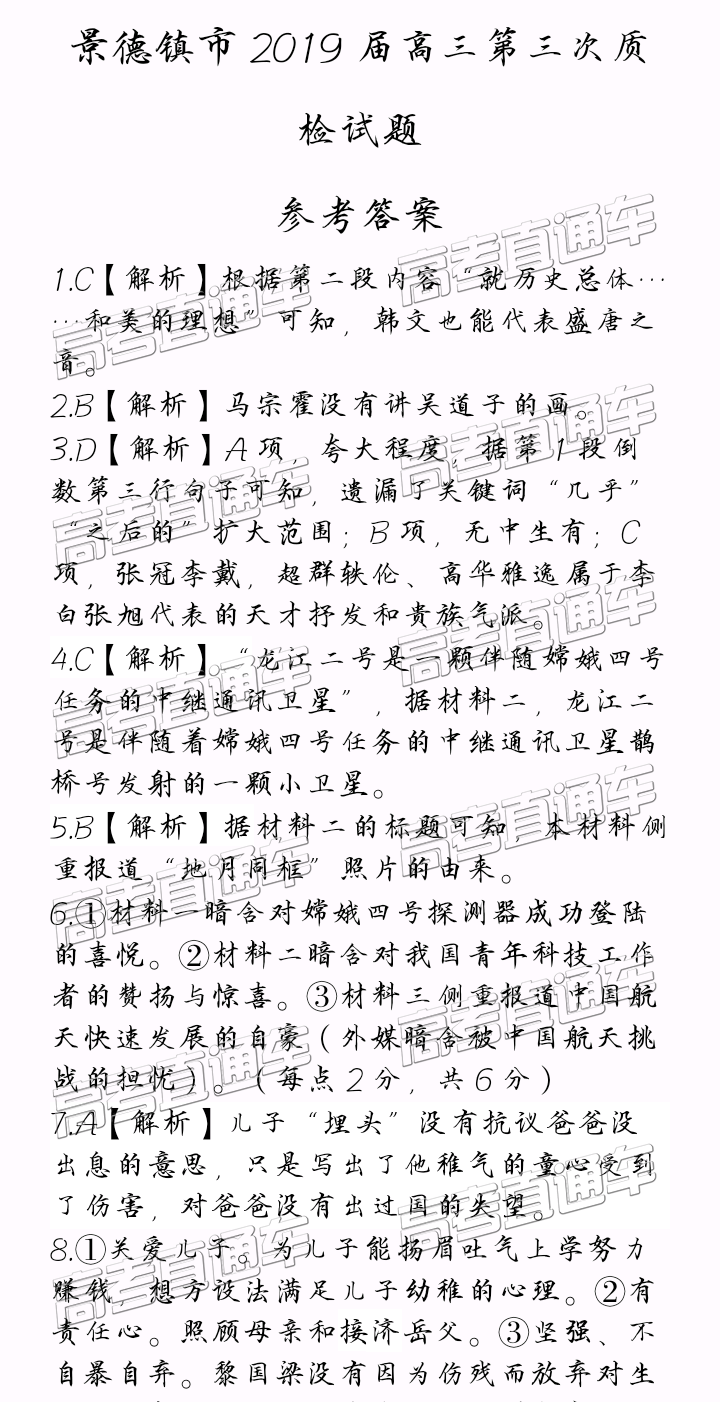 景德镇市2019届高三第三次质
检试题
参考答案
1.C【解析】根据第二段内容“就历史总体…
…和美的理想”可知，韩文也能代表盛唐之
音。
2.B【解析】马宗霍没有讲吴道子的画。
3.D【解析】A项，夸大程度，据第1段倒
数第三行句子可知，遗漏了关键词“几乎”
“之后的”扩大范围；B项，无中生有；C
项，张冠李戴，超群轶伦、高华雅逸属于李
白张旭代表的天才抒发和贵族气派。
4.C【解析】“龙江二号是一颗伴随嫦娥四号
任务的中继通讯卫星”，据材料二，龙江二
号是伴随着嫦娥四号任务的中继通讯卫星鹊
桥号发射的一颗小卫星。
5.B【解析】据材料二的标题可知，本材料侧
重报道“地月同框”照片的由来。
6.①材料一暗含对嫦娥四号探测器成功登陆
的喜悦。②材料二暗含对我国青年科技工作
者的赞扬与惊喜。③材料三侧重报道中国航
天快速发展的自豪（外媒暗含被中国航天挑
战的担忧）。（每点2分，共6分）
7.A【解析】儿子“埋头”没有抗议爸爸没
出息的意思，只是写出了他稚气的童心受到
了伤害，对爸爸没有出过国的失望。
8.①关爱儿子。为儿子能扬眉吐气上学努力
赚钱，想方设法满足儿子幼稚的心理。②有
责任心。照顾母亲和接济岳父。③坚强、不
自暴自弃。黎国梁没有因为伤残而放弃对生
高考直通车